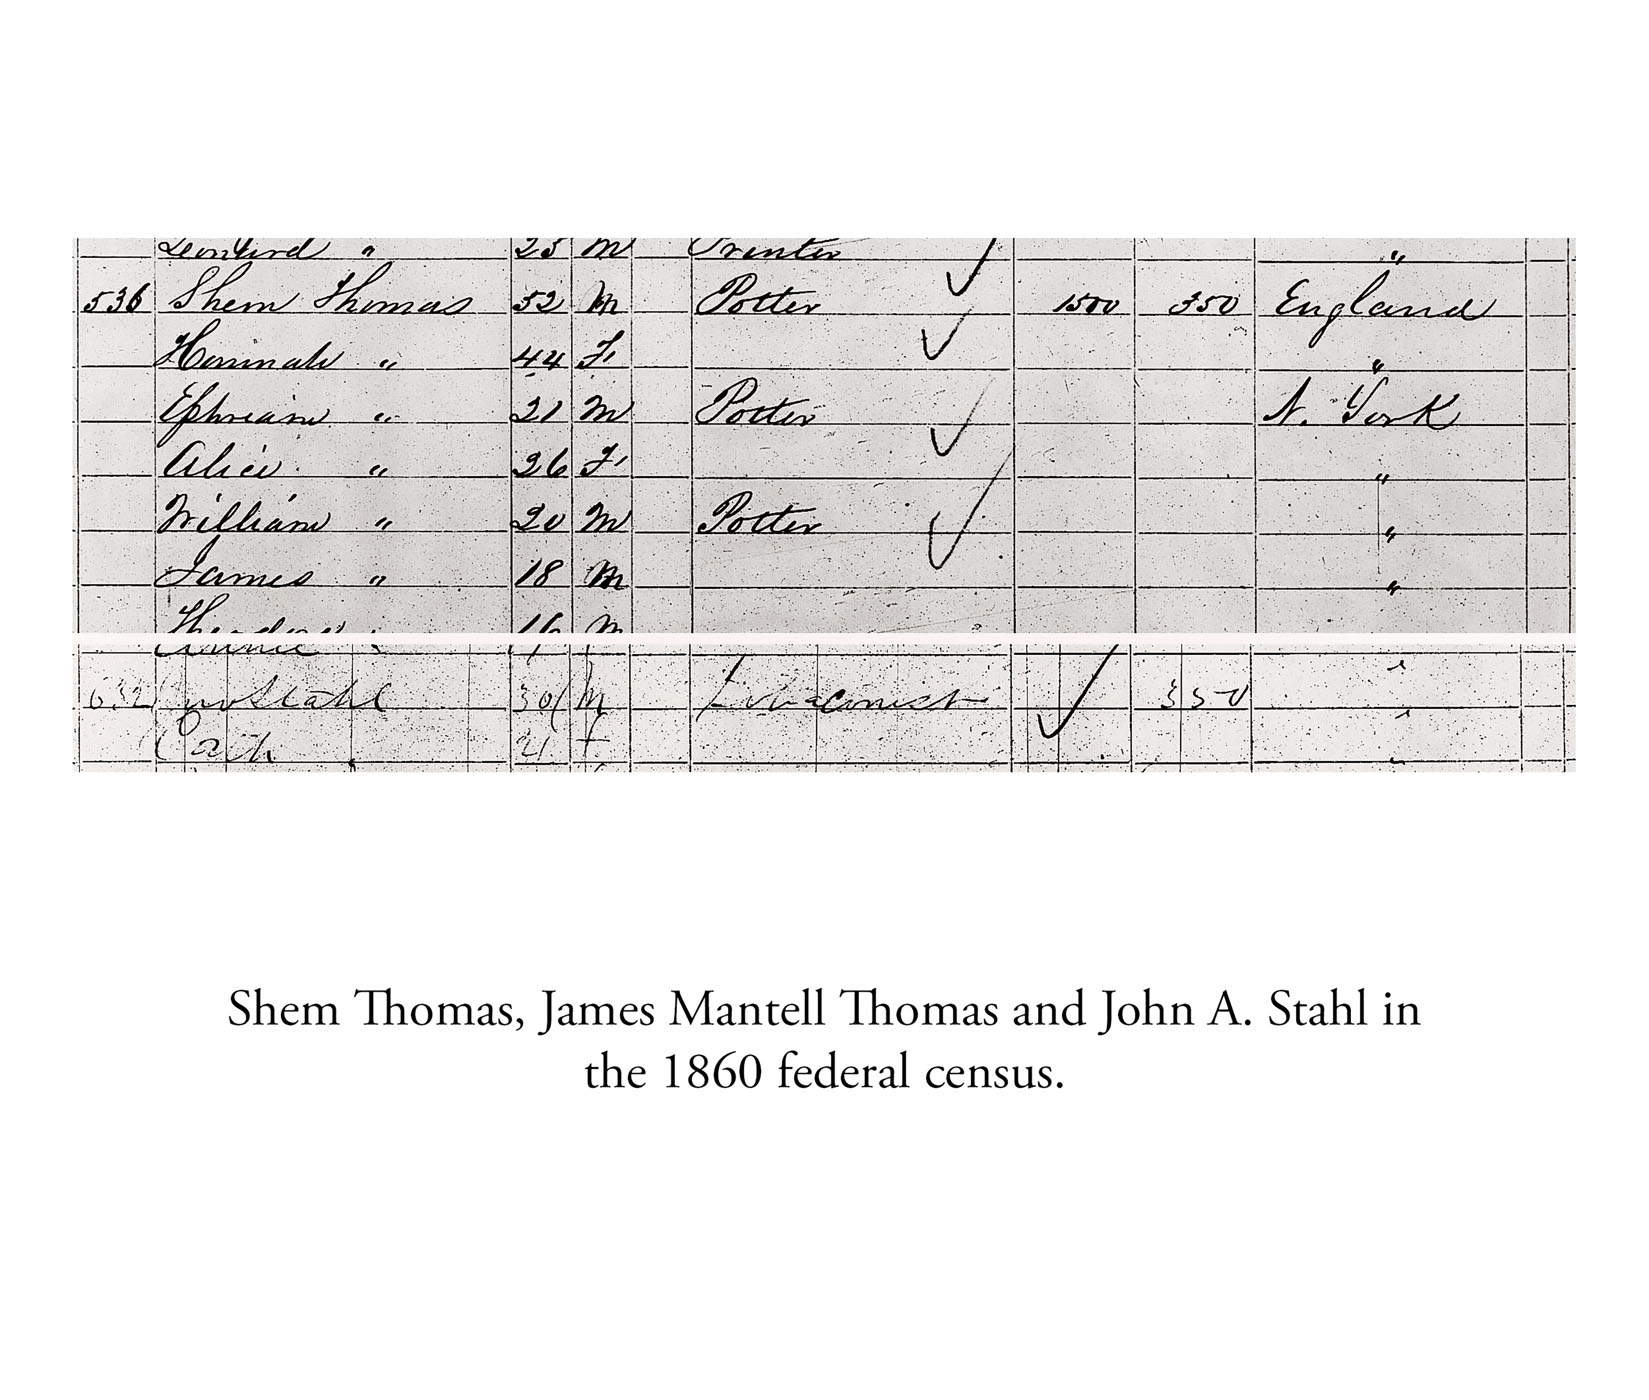 Leonard " 25 M Printer "
536 Shem Thomas 52 M Potter 1500 350 England
Hannah " 44 F "
Ephriam " 21 M Potter N. York
Alice " 26 F "
William " 20 M Potter "
James " 18 M "
Theodore " 16 M
Stahl 30 M Tobacconist 350 "
21 F "
Shem Thomas, James Mantell Thomas and John A. Stahl in
the 1860 federal census.